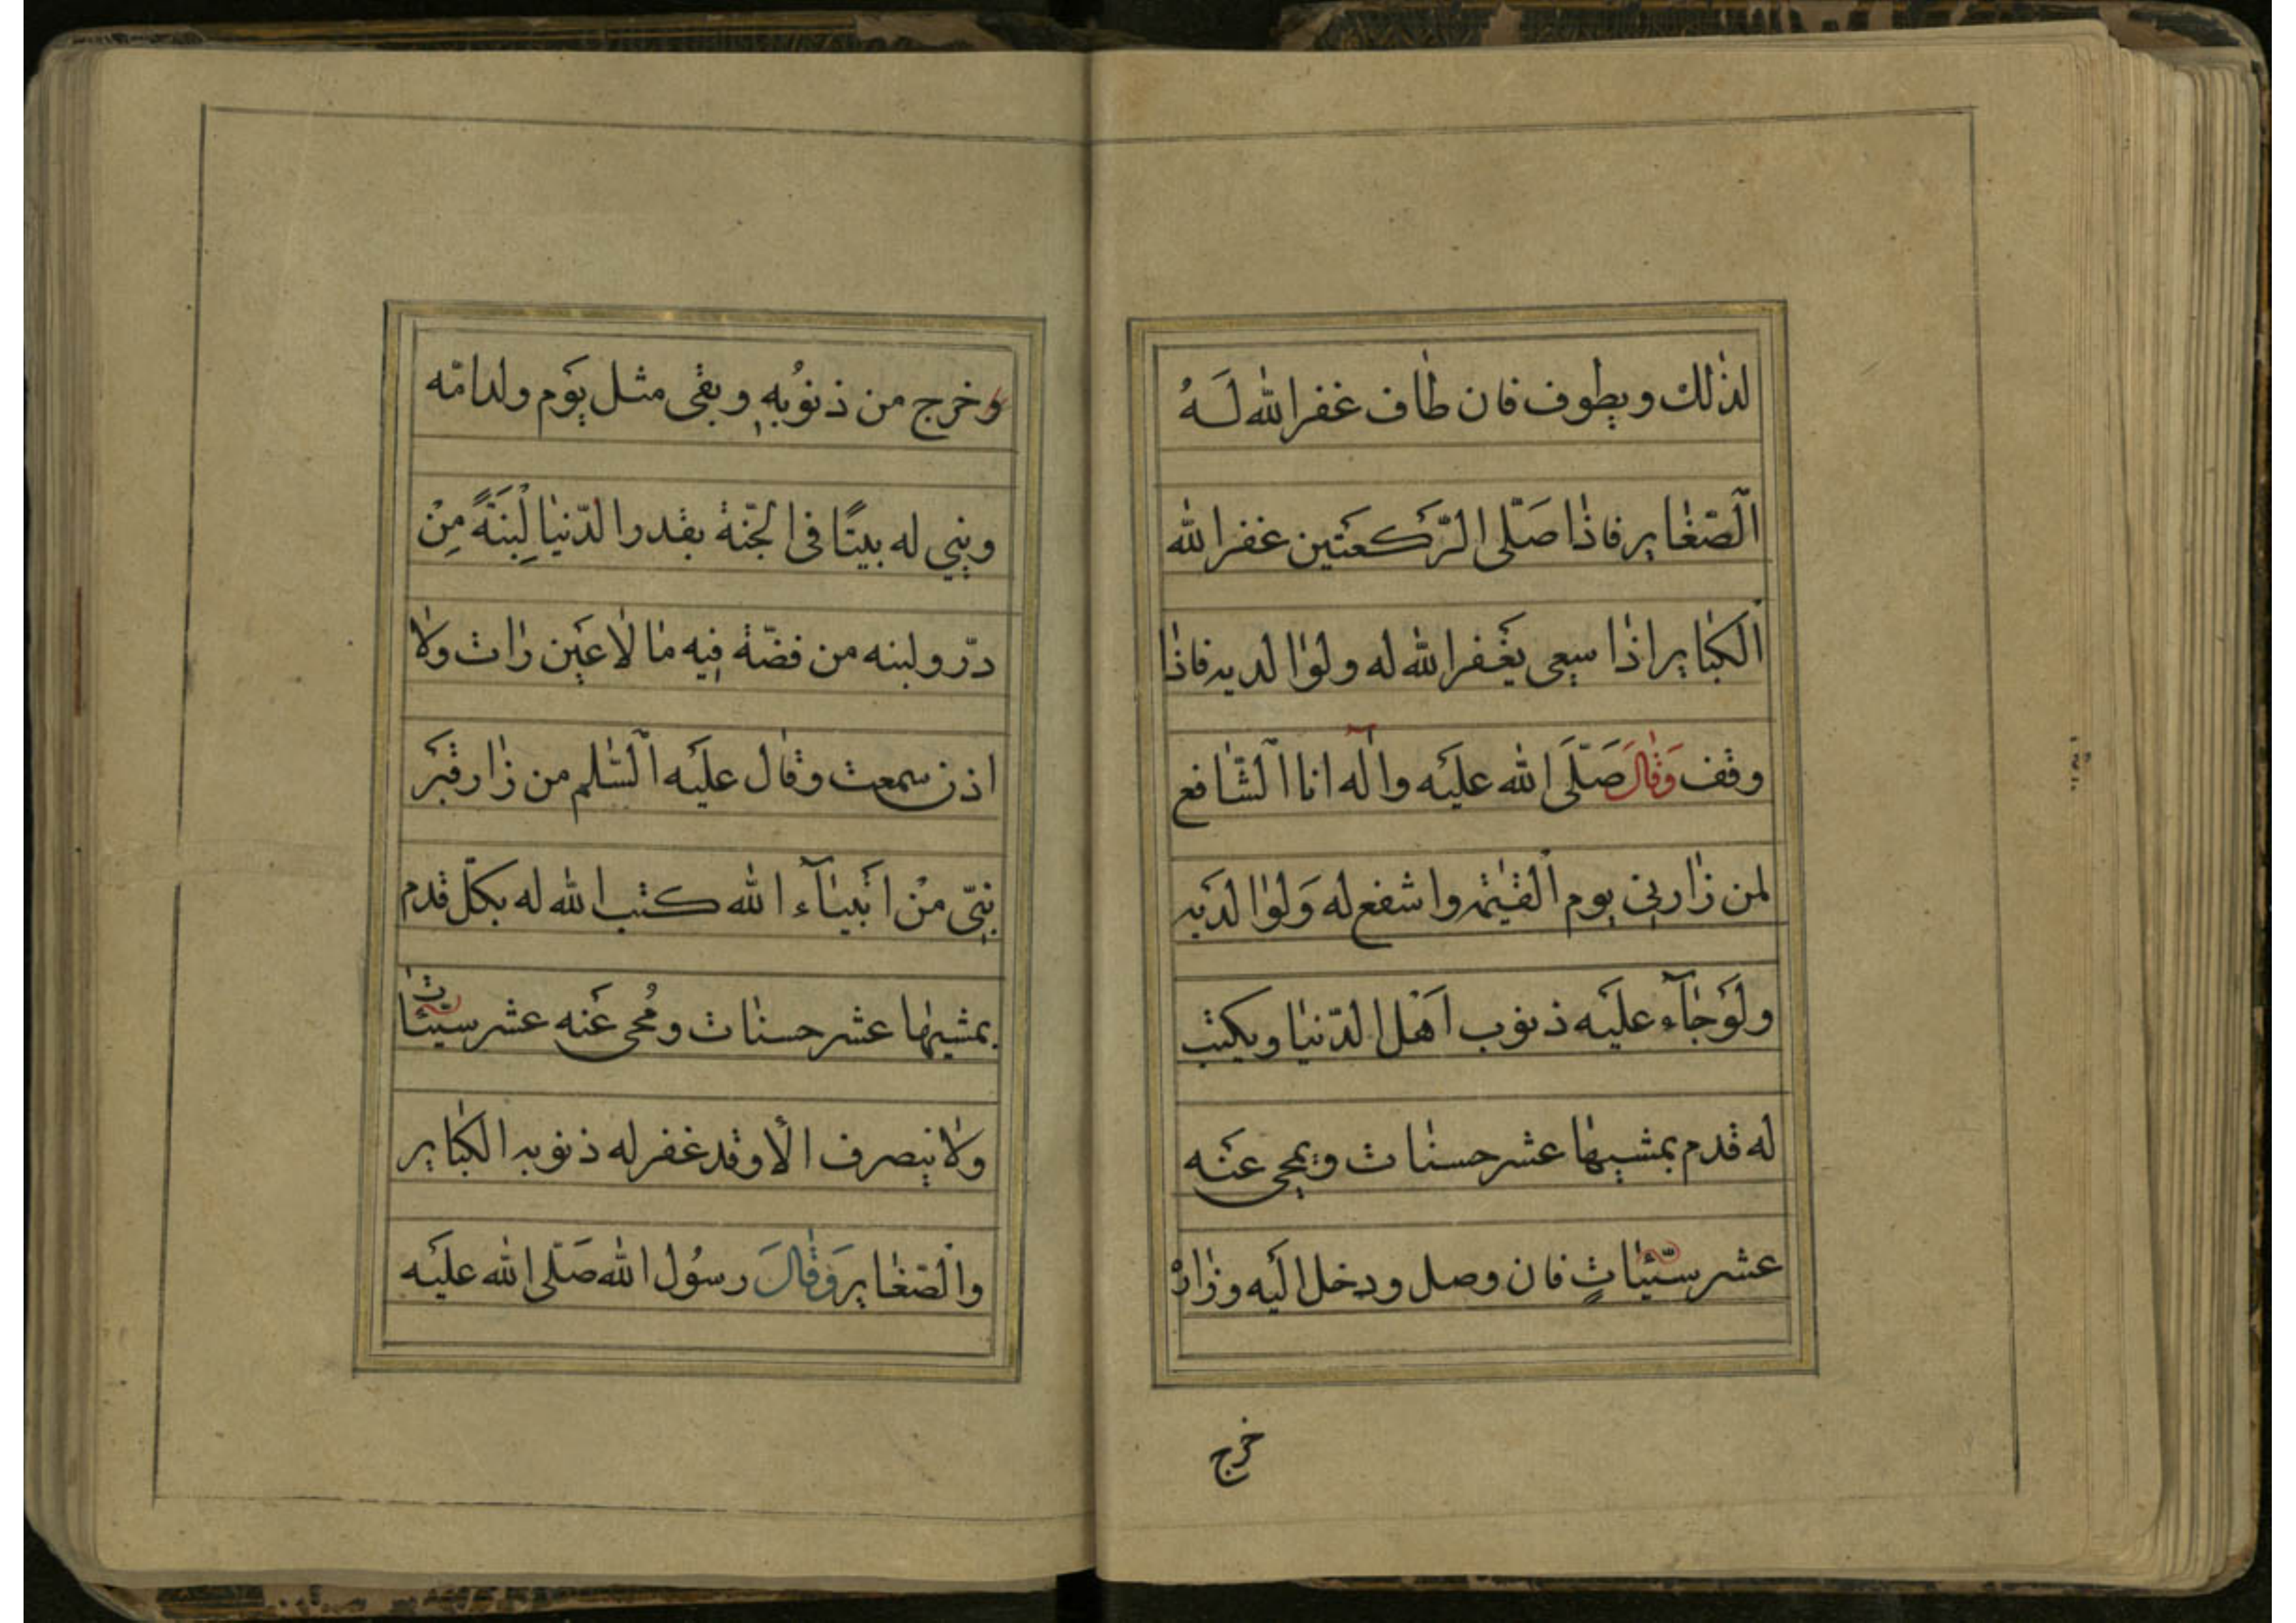 لذلك ويطوف فان طاف غفر الله لَهُ
الصّغاير فاذا صَلّى الرّكعَتين غفر الله
الكبَاير اذا سعى يغْفر الله له ولوالديه فاذا
وقف وَقالَ صَلّى الله عليَه واله انا الشّافع
لمن زارني يوم القيٰمة واشفع له وَلوالدَيه
ولَوجَآء عليَه ذنوب اَهْل الدّنيا ويكتب
له قدم بمشيها عشر حسنات ويمحى عنَه
عشر سيّئاتٍ فان وصل ودخل اليَه وزارهْ
خرج
وخرج من ذنوُبه وبقى مثل يوَم ولد امّه
وبني له بيتًا فى الجّنة بقدر الدّنيا لِبْنَةً مِنْ
درّ ولبنه من فضّة فيه ما لا عَين رات ولا
اذن سمعت وقال عليَه السّلم من زار قبَر
نبّي منْ انبيَآء الله كتب الله له بكلّ قدم
بمشيها عشر حسنات ومُحى عَنه عشر سيّئات
ولا ينصرف الّا وقد غفر له ذنوبه الكبَاير
والصّغاير وَقالَ رسوُل الله صَلّى الله عليَه